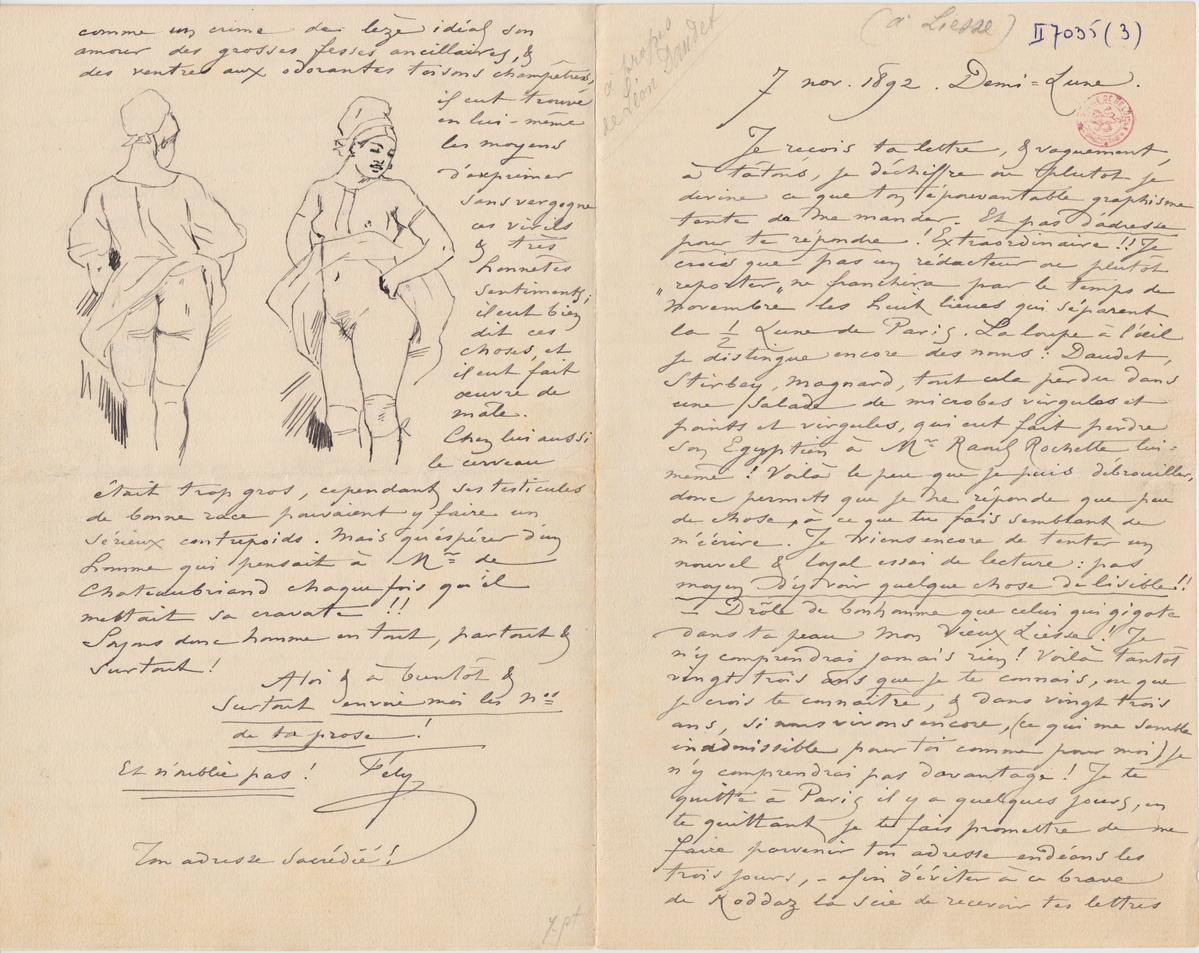 comme un crime de lèze idéal son
amour des grosses fesses ancillaires, &
des ventres aux odorantes toisons champêtres,
il eut trouvé
en lui-même
les moyens
d'exprimer
sans vergogne
ces virils
& très
honnêtes
sentiments;
il eut bien
dit ces
choses, et
il eut fait
œuvre de
mâle.
Chez lui aussi
le cerveau
était trop gros, cependant ses testicules
de bonne race pouvaient y faire un
sérieux contrepoids. Mais qu'espérer d'un
homme qui pensait à Mme de
Chateaubriand chaque fois qu'il
mettait sa cravate !!
Soyons donc homme en tout, partout &
surtout !
A toi & à bientôt &
surtout envoie moi les nos
de ta prose !
Et n'oublie pas ! Fély
Ton adresse sacrédié !
à propos
de Léon Daudet
(à Liesse)
II 7035 (3)
7 nov. 1892. Demi-Lune.
Je reçois ta lettre, & vaguement,
à tâtons, je déchiffre ou plutôt je
devine ce que ton épouvantable graphisme
tente de me mander. Et pas d'adresse
pour te répondre ! Extraordinaire !! Je
crois que pas un rédacteur ou plutôt
"reporter" ne franchira par le temps de
novembre les huit lieues qui séparent
la ½ Lune de Paris. La loupe à l'œil
je distingue encore des noms : Daudet,
Stirbey, Magnard, tout cela perdu dans
une salade de microbes virgules et
points et virgules, qui eut fait perdre
son Egyptien à Mr Raoul Rochette lui-
même ! Voilà le peu que je puis débrouiller,
donc permets que je ne réponde que peu
de chose, à ce que tu fais semblant de
m'écrire. Je viens encore de tenter un
nouvel & loyal essai de lecture : pas
moyen d'y voir quelque chose de lisible !!
— Drôle de bonhomme que celui qui gigote
dans ta peau mon vieux Liesse ! Je
n'y comprendrai jamais rien ! Voilà tantôt
vingt trois ans que je te connais, ou que
je crois te connaître, & dans vingt trois
ans, si nous vivons encore, (ce qui me semble
inadmissible pour toi comme pour moi) je
n'y comprendrai pas davantage ! Je te
quitte à Paris il y a quelques jours, en
te quittant je te fais promettre de me
faire parvenir ton adresse endéans les
trois jours, - afin d'éviter à ce brave
de Roddaz la scie de recevoir tes lettres